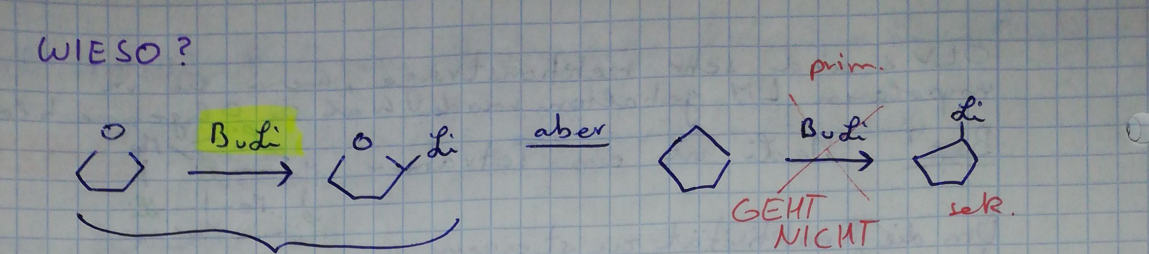 WIESO?
prim.
O BuLi O Li aber BuLi Li
GEHT
NICHT
sek.